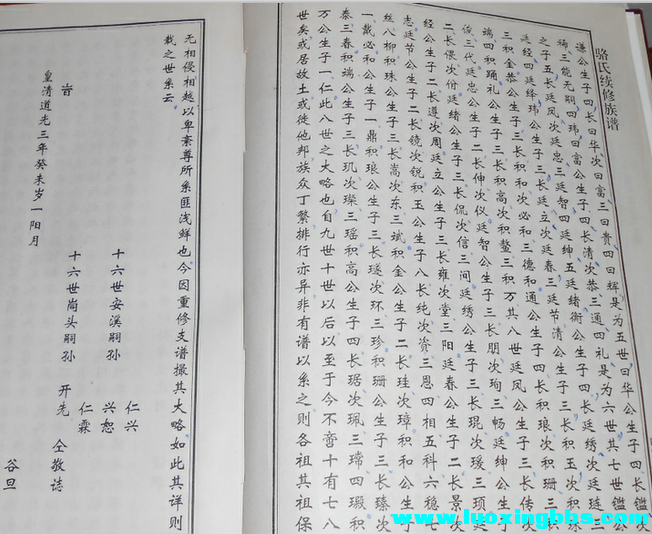 骆氏续修族谱
谦公生子四长曰华次曰富三曰贵四曰辉是为五世曰华公生子四长鑑
三能无嗣四玮曰富公生子四长清次恭三通四礼是为六世其七世鑑公
之子五长廷凤次廷忠三廷智四廷绅五廷绪衡公生子四长廷绣次廷琏三
廷经四廷绎玮公生子三长廷立次廷春三廷节清公生子三长积玉次积
三积金恭公生子三长积和次必和三德和通公生子四长积琅次积珊三积
端四积踊礼公生子三长积高次积鳌三积万其八世廷凤公生子三长传次
三代廷忠公生子二长伸次仪廷智公生子三长朋次珣三畅廷绅公生子
二长偎次佾廷绪公生子三长侃次信三间廷绣公生子三长琨次瑗三顼廷
经公生子二长遵次周廷立公生子三长雍次堂三阳廷春公生子二长景次
志廷节公生子二长镜次锐积玉公生子八长纯次资三恩四相五科六稳七
丝八柳积珠公生子三长嵩次东三斌积金公生子二长珪次璋积和公生子
一戴必和公生子一鼎积琅公生子三长璲次环三珍积珊公生子三长臻次
泰三春积端公生子三长玑次璨三瑶积高公生子四长琚次珮三瑺四瑕积
万公生子一仁此八世之大略也自九世十世以后以至于今不啻十有七八
世矣或居故土或徙他邦族众丁繁排行亦异非有谱以系之则各祖其祖保
无相侵相越以卑紊尊所系匪浅鲜也今因重修支谱撮其大略如此其详则
载之世系云
十六世安溪嗣孙 仁兴
兴恕
仁霖
十六世尚头嗣孙 开先 仝敬志
旹
皇清道光三年癸未岁一阳月 谷旦
www.luoxingbbs.com